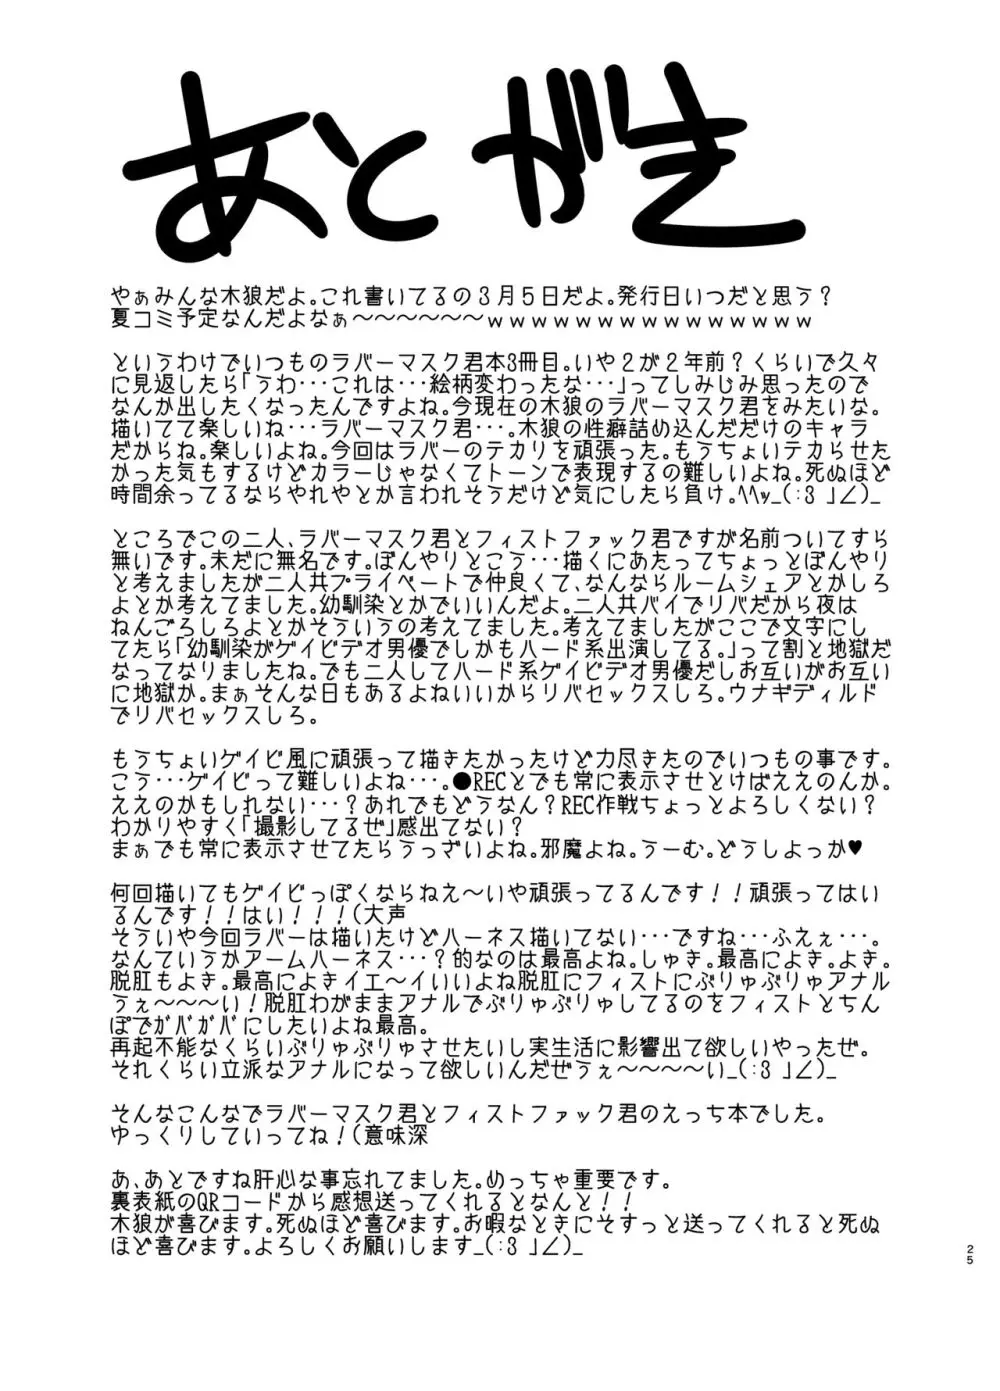 あとがき
やぁみんな木狼だよ。これ書いてるの3月5日だよ。発行日いつだと思う?
夏コミ予定なんだよなぁ〜〜〜〜〜〜wwwwwwwwwwwwwww
というわけでいつものラバーマスク君本3冊目。いや2が2年前?くらいで久々
に見返したら「うわ・・・これは・・・絵柄変わったな・・・」ってしみじみ思ったので
なんか出したくなったんですよね。今現在の木狼のラバーマスク君をみたいな。
描いてて楽しいね・・・ラバーマスク君・・・。木狼の性癖詰め込んだだけのキャラ
だからね。楽しいよね。今回はラバーのテカリを頑張った。もうちょいテカらせた
かった気もするけどカラーじゃなくてトーンで表現するの難しいよね。死ぬほど
時間余ってるならやれやとか言われそうだけど気にしたら負け。ﾍﾍｯ_(:3 」∠)_
ところでこの二人、ラバーマスク君とフィストファック君ですが名前ついてすら
無いです。未だに無名です。ぼんやりとこう・・・描くにあたってちょっとぼんやり
と考えましたが二人共プライベートで仲良くて、なんならルームシェアとかしろ
よとか考えてました。幼馴染とかでいいんだよ。二人共バイでリバだから夜は
ねんごろしろよとかそういうの考えてました。考えてましたがここで文字にし
てたら「幼馴染がゲイビデオ男優でしかもハード系出演してる。」って割と地獄だ
なってなりましたね。でも二人してハード系ゲイビデオ男優だしお互いがお互い
に地獄か。まぁそんな日もあるよねいいからリバセックスしろ。ウナギディルド
でリバセックスしろ。
もうちょいゲイビ風に頑張って描きたかったけど力尽きたのでいつもの事です。
こう・・・ゲイビって難しいよね・・・。●RECとでも常に表示させとけばええのんか。
ええのかもしれない・・・?あれでもどうなん?REC作戦ちょっとよろしくない?
わかりやすく「撮影してるぜ」感出てない?
まぁでも常に表示させてたらうっざいよね。邪魔よね。うーむ。どうしよっか♥
何回描いてもゲイビっぽくならねえ〜いや頑張ってるんです!!頑張ってはい
るんです!!はい!!!(大声
そういや今回ラバーは描いたけどハーネス描いてない・・・ですね・・・ふえぇ・・・。
なんていうかアームハーネス・・・?的なのは最高よね。しゅき。最高によき。よき。
脱肛もよき。最高によきイエ〜イいいよね脱肛にフィストにぶりゅぶりゅアナル
うぇ〜〜〜い!脱肛わがままアナルでぶりゅぶりゅしてるのをフィストとちん
ぽでｶﾞﾊﾞｶﾞﾊﾞにしたいよね最高。
再起不能なくらいぶりゅぶりゅさせたいし実生活に影響出て欲しいやったぜ。
それくらい立派なアナルになって欲しいんだぜうぇ〜〜〜〜い_(:3 」∠)_
そんなこんなでラバーマスク君とフィストファック君のえっち本でした。
ゆっくりしていってね!(意味深
あ、あとですね肝心な事忘れてました。めっちゃ重要です。
裏表紙のQRコードから感想送ってくれるとなんと!!
木狼が喜びます。死ぬほど喜びます。お暇なときにそすっと送ってくれると死ぬ
ほど喜びます。よろしくお願いします_(:3 」∠)_
25